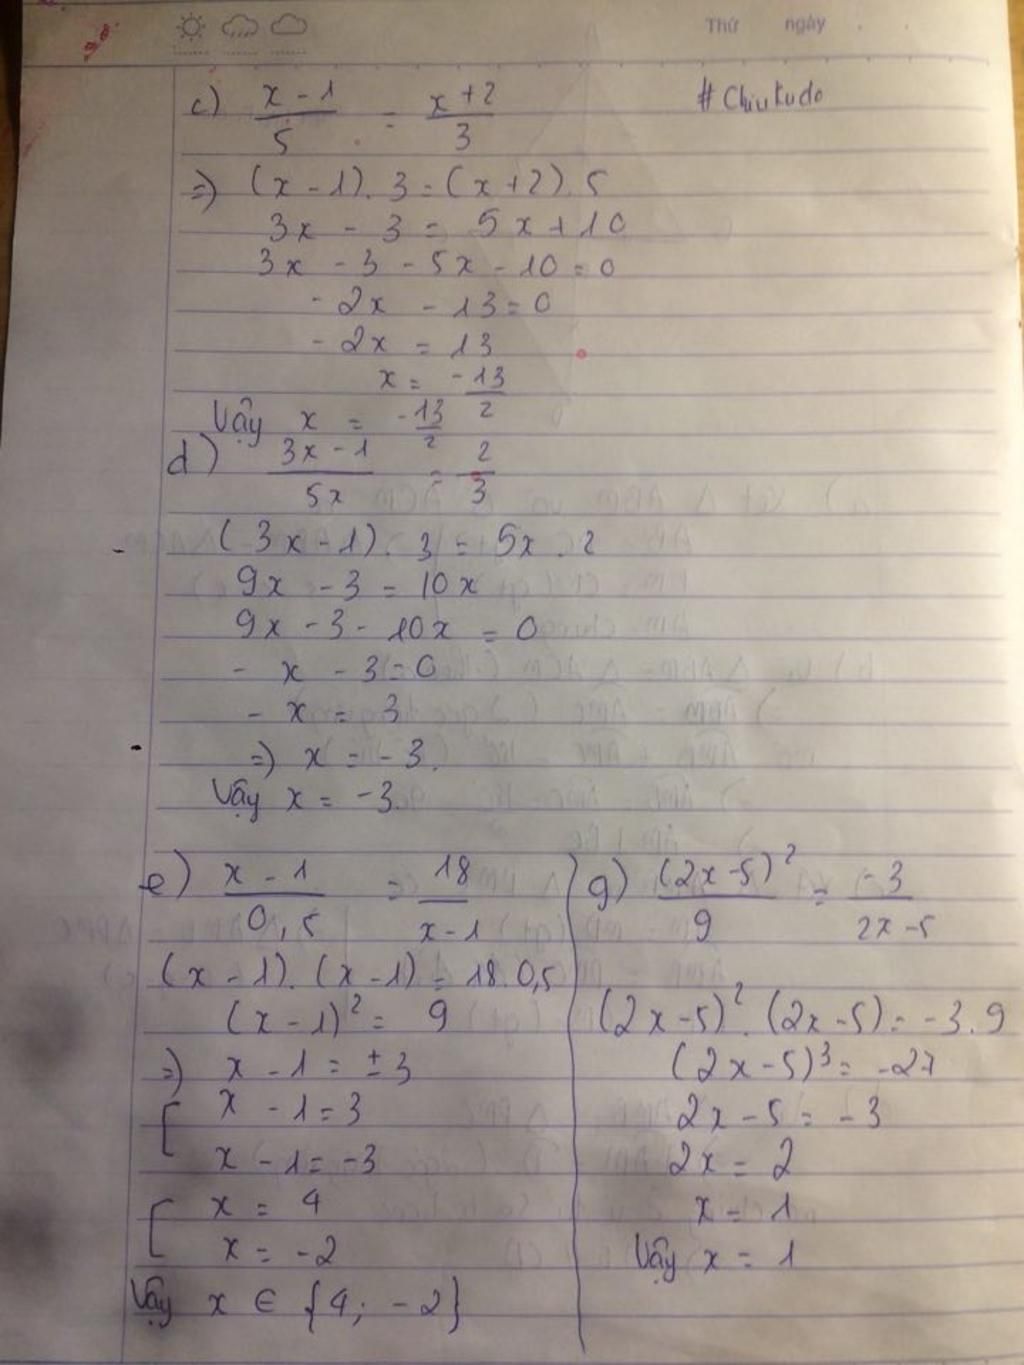 Thứ ngày
#Chiukudo
c) \frac{x-1}{5} = \frac{x+2}{3}
=) (x-1).3=(x+2).5
3x - 3 = 5x+10
3x - 3 - 5x - 10 = 0
- 2x - 13 = 0
- 2x = 13
x = \frac{-13}{2}
Vậy x = \frac{-13}{2}
d) \frac{3x-1}{5x} = \frac{2}{3}
(3x-1).3 = 5x.2
9x - 3 = 10x
9x - 3 - 10x = 0
- x - 3 = 0
- x = 3
=) x = -3.
Vậy x = -3.
e) \frac{x-1}{0,5} = \frac{18}{x-1}
(x-1).(x-1) = 18.0,5
(x-1)² = 9
=) x - 1 = ±3
[ x - 1 = 3
x - 1 = -3
[ x = 4
x = -2
Vậy x ∈ {4; -2}
g) \frac{(2x-5)²}{9} = \frac{-3}{2x-5}
(2x-5)².(2x-5) = -3.9
(2x-5)³ = -27
2x-5 = -3
2x = 2
x = 1
Vậy x = 1